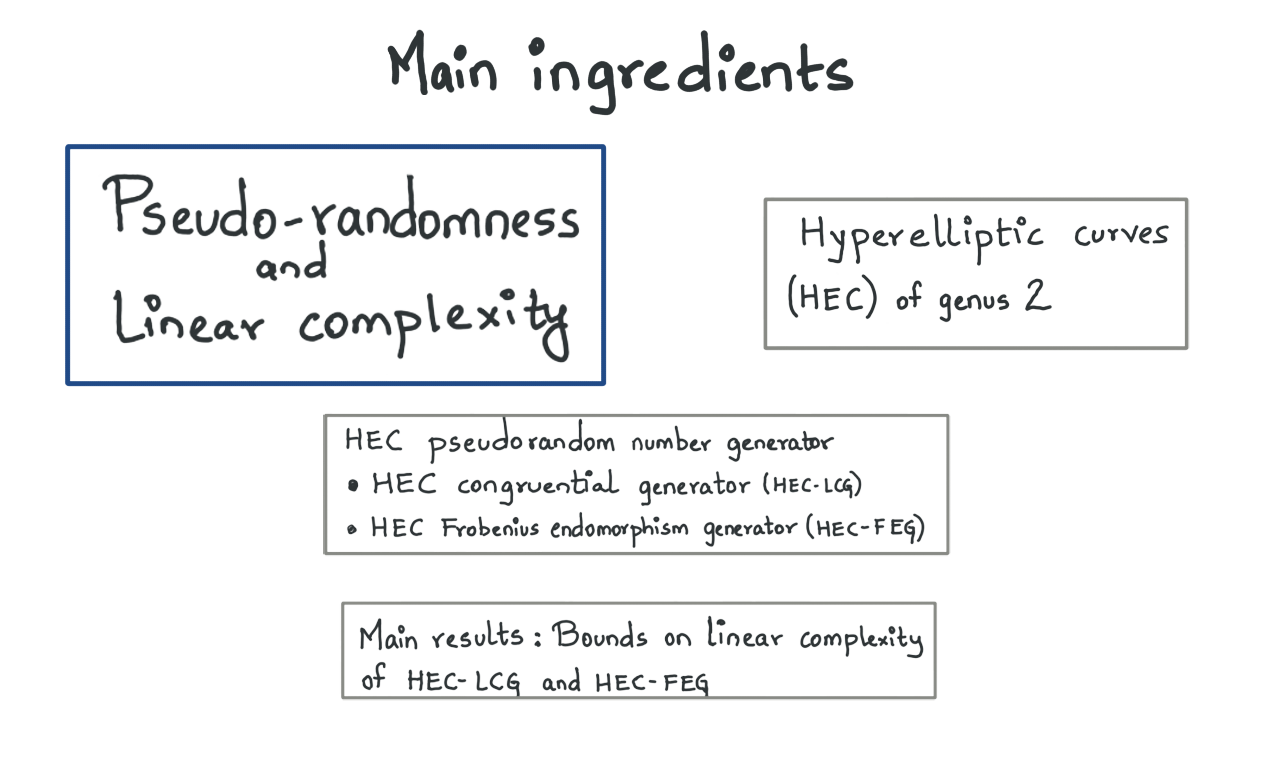 Main ingredients
Pseudo-randomness
and
Linear complexity
Hyperelliptic curves
(HEC) of genus 2
HEC pseudorandom number generator
• HEC congruential generator (HEC-LCG)
• HEC Frobenius endomorphism generator (HEC-FEG)
Main results: Bounds on linear complexity
of HEC-LCG and HEC-FEG